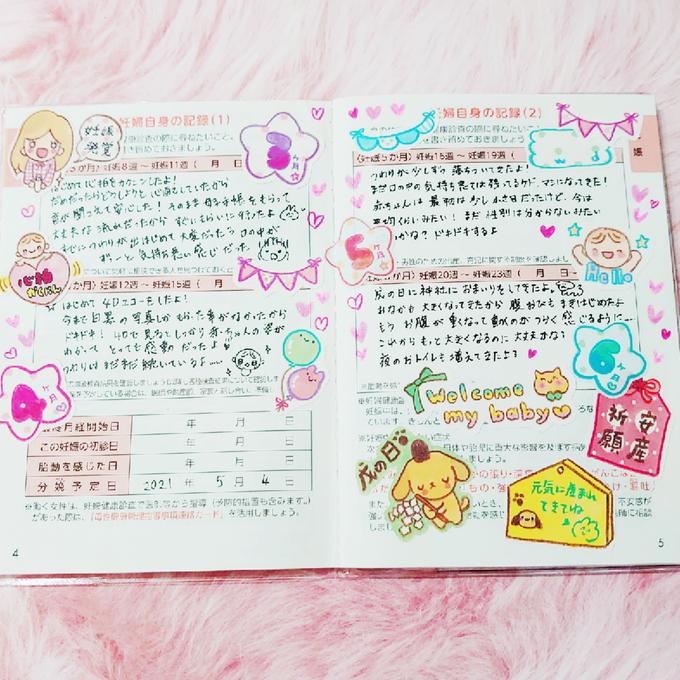 妊娠発覚
妊婦自身の記録(1)
3ヶ月
か月)妊娠8週~妊娠11週( 月 日
はじめて心拍をカクニンしたよ!
だめだったらどうしようと心配していたから
音が聞こえて安心した!そのまま母子手帳をもらって
大丈夫な流れだったからすぐにもらいに行ったよ
すでにつわりが出はじめて大変だったっ口の中が
ずーっと気持ち悪い感じだった
心拍
かくにん
か月)妊娠12週~妊娠15週(
はじめて4Dエコーをしたよ!
今まで白黒の写真しかもらった事がなかったから
ドキドキ!4Dで見るとしっかり赤ちゃんの姿が
わかってとっても感動のだったよ
つわりはまだまだ続いているよ…
4ヶ月
最終月経開始日 年 月 日
この妊娠の初診日 年 月 日
胎動を感じた日 年 月 日
分娩予定日 2021年 5月 4日
※働く女性は、妊娠健康診査で医師等から指導(予防的措置も含みます。)
があった際は、「母性健康管理指導事項連絡カード」を活用しましょう。
4
婦自身の記録(2)
(妊娠5か月)妊娠16週~妊娠19週( 月
つわりが少しずつ落ちついてきたよ!
まだ口の中の気持ち悪さは残ってるケド、マシになってきた!
赤ちゃんは最初は少し小さ目だったけど、今は
平均くらいみたい!まだ性別は分からないみたい
かな?ドキドキするよ
5ヶ月
か月)妊娠20週~妊娠23週( 月 日
Hello
戌の日に神社におまいりをしてきたよ。
おなかも大きくなってきたから腹おびもまきはじめたよ
もうお腹が重くなって動くのがつらく感じるように…
これからもっと大きくなるのに大丈夫かな?
夜のおトイレも増えてきたよ?
6ヶ月
Welcome
my baby
安産
祈願
戌の日
元気に産まれ
てきてね
5